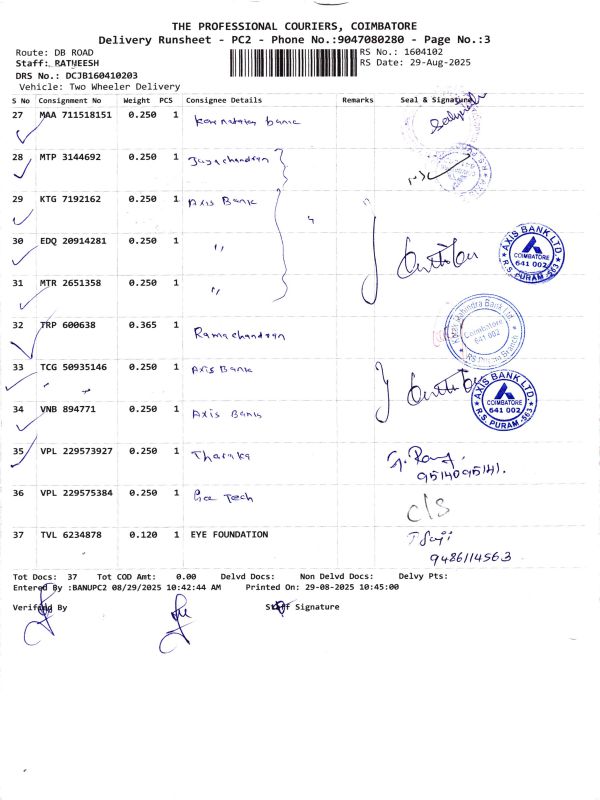 THE PROFESSIONAL COURIERS, COIMBATORE
Delivery Runsheet - PC2 - Phone No.:9047080280 - Page No.:3
Route: DB ROAD RS No.: 1604102
Staff: RATHEESH RS Date: 29-Aug-2025
DRS No.: DCJB160410203
Vehicle: Two Wheeler Delivery
S No Consignment No Weight PCS Consignee Details Remarks Seal & Signature
27 MAA 711518151 0.250 1 Karnataka bank
28 MTP 3144692 0.250 1 Jayachandran
29 KTG 7192162 0.250 1 Axis Bank
30 EDQ 20914281 0.250 1 "
AXIS BANK LTD
COIMBATORE
641 002
R.S. PURAM-563
31 MTR 2651358 0.250 1 "
32 TRP 600638 0.365 1 Ramachandran
Kotak Mahindra Bank Ltd
Coimbatore
641 002
RS Puram Branch
33 TCG 50935146 0.250 1 Axis Bank
" "
34 VNB 894771 0.250 1 Axis Bank
AXIS BANK LTD
COIMBATORE
641 002
R.S. PURAM-563
35 VPL 229573927 0.250 1 Tharaka
9514095141.
36 VPL 229575384 0.250 1 Tech c/s
37 TVL 6234878 0.120 1 EYE FOUNDATION
9486114563
Tot Docs: 37 Tot COD Amt: 0.00 Delvd Docs: Non Delvd Docs: Delvy Pts:
Entered By :BANUPC2 08/29/2025 10:42:44 AM Printed On: 29-08-2025 10:45:00
Verified By Staff Signature